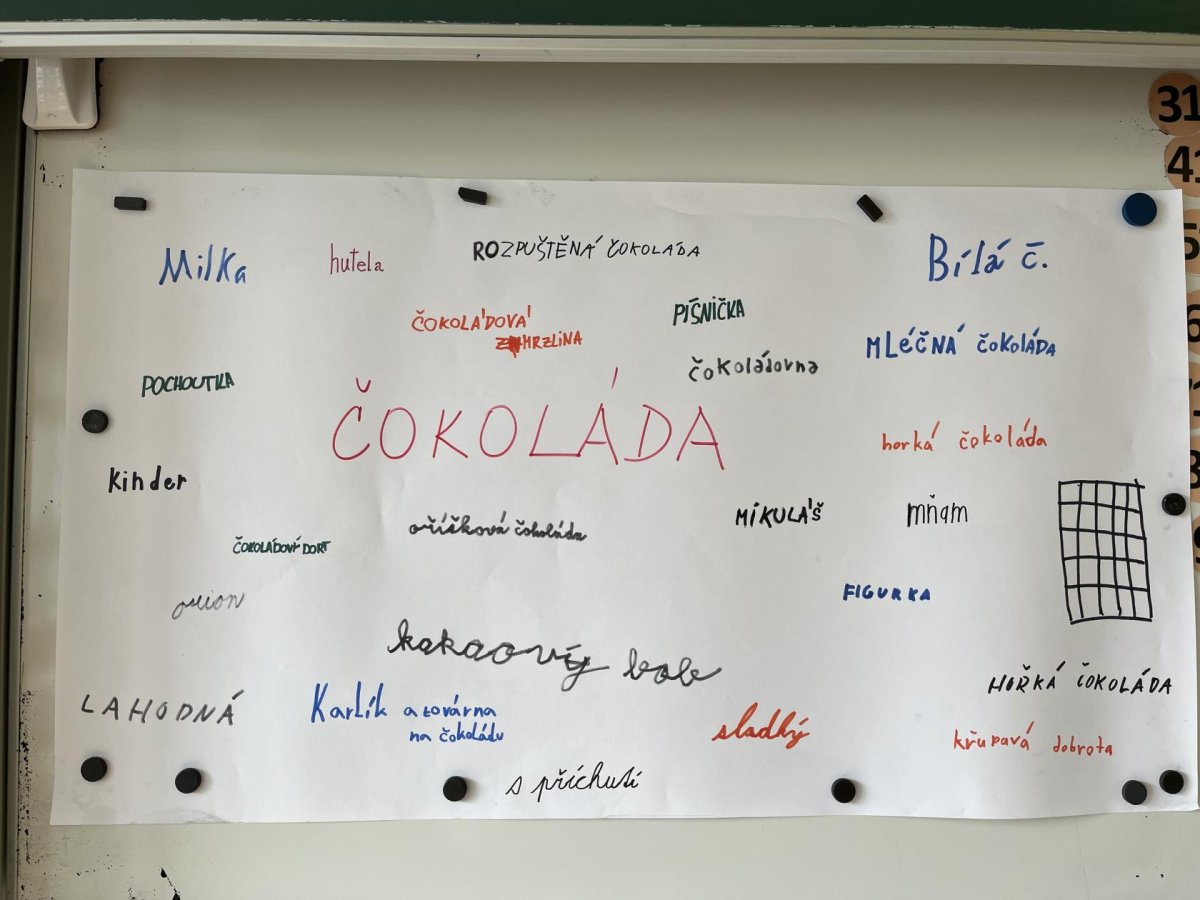 31
41
Milka
hutela
ROZPUŠTĚNÁ ČOKOLÁDA
Bílá č.
ČOKOLÁDOVÁ
ZMRZLINA
PÍSNIČKA
MLéČNÁ čokoláda
čokoládovna
POCHOUTKA
ČOKOLÁDA
horká čokoláda
kinder
oříšková čokoláda
MIKULÁŠ
mňam
ČOKOLÁDOVÝ DORT
orion
FIGURKA
kakaový bob
HOŘKÁ ČOKOLÁDA
LAHODNÁ
Karlík a továrna
na čokoládu
sladký
křupavá dobrota
s příchutí